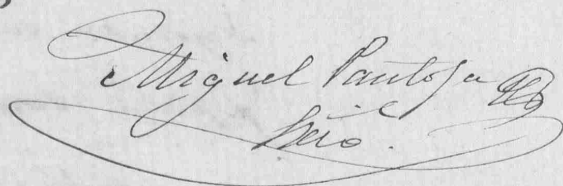 Miguel Pantoja
Srio.